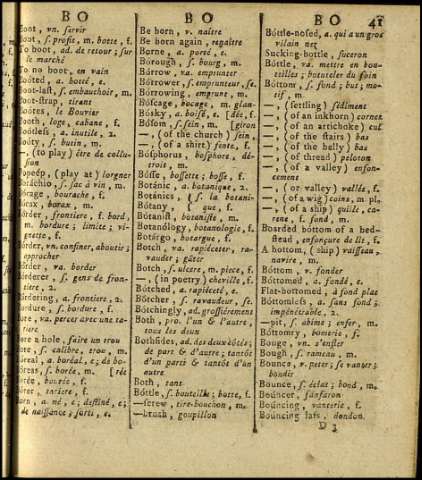 B O
B O
B O
41
Boot, vn. servir
Boot, s. profit, m. botte, f.
To boot, ad. de retour; sur
le marché
To no boot, en vain
Booted, a. botté, e.
Boot-last, s. embauchoir, m.
Boot-strap, tirant
Boótes, le Bouvier
Booth, loge, cabane, f.
Bootless, a. inutile, 2.
Boóty, s. butin, m.
—, (to play) être de collu-
sion
Bopeép, (play at) lorgner
Boráchio, s. sac à vin, m.
Borage, bourache, f.
Borax, borax, m.
Border, frontiere, f. bord,
m. bordure; limite; vi-
gnette, f.
Bórder, vn. confiner, aboutir;
approcher
Border, va. border
Borderer, s. gens de fron-
tiere, 2.
Bórdering, a. frontiere, 2.
Bordure, s. bordure, f.
Bore, va. percer avec une ta-
riere
Bore a hole, faire un trou
Bore, s. calibre, trou, m.
Boreal, a. boréal, e; de bo-
Bóreas, s. borée, m. [rée
Borée, bourée, f.
Borer, tariere, f.
Born, a. né, e; destiné, e;
de naissance; sorti, e.
Be born, v. naître
Be born again, renaître
Borne, a. porté, e.
Bórough, s. bourg, m.
Bórrow, va. emprunter
Bórrower, s. emprunteur, se.
Bórrowing, emprunt, m.
Bóscage, bocage, m. glan-
Bósky, a. boisé, e. [dée, f.
Bósom, s. sein, m. [giron
—, (of the church) sein,
—, (of a shirt) fente, f.
Bósphorus, bosphore, dé-
troit, m.
Bósse, bossette; bosse, f.
Botánic, a. botanique, 2.
Botánics, s. la botani-
Bótany, que, f.
Bótanist, botaniste, m.
Botanólogy, botanologie, f.
Botárgo, botargue, f.
Botch, va. rapiéceter, ra-
vauder; gâter
Botch, s. ulcere, m. piece, f.
—, (in poetry) cheville, f.
Botched, a. rapiéceté, e.
Bótcher, s. ravaudeur, se.
Bótchingly, ad. grossiérement
Both, pro. l'un & l'autre,
tous les deux
Bothsides, ad. des deux côtés;
de part & d'autre; tantôt
d'un parti & tantôt d'un
autre
Both, tant
Bóttle, s. bouteille; botte, f.
—screw, tire-bouchon, m.
—brush, goupillon
Bóttle-nosed, a. qui a un gros
vilain nez
Sucking-bottle, suceron
Bóttle, va. mettre en bou-
teilles; boteler du foin
Bóttom, s. fond; but; mo-
tif, m.
—, (settling) sédiment
—, (of an inkhorn) cornet
—, (of an artichoke) cul
—, (of the stairs) bas
—, (of the belly) bas
—, (of thread) peloton
—, (of a valley) enfon-
cement
—, (or valley) vallée, f.
—, (of a wig) coins, m. pl.
—, (of a ship) quille, ca-
rene, f. fond, m.
Boarded bottom of a bed-
stead, enfonçure de lit, f.
A bottom, (ship) vaisseau,
navire, m.
Bóttom, v. fonder
Bóttomed, a. fondé, e.
Flat-bottomed, à fond plat
Bóttomless, a. sans fond;
impénétrable, 2.
—pit, s. abîme; enfer, m.
Bóttomry, bomerie, f.
Bouge, vn. s'enfler
Bough, s. rameau, m.
Bounce, v. peter; se vanter;
bondir
Bounce, s. éclat; bond, m.
Boúncer, fanfaron
Boúncing, vanterie, f.
Boúncing lass, dondon
D 3